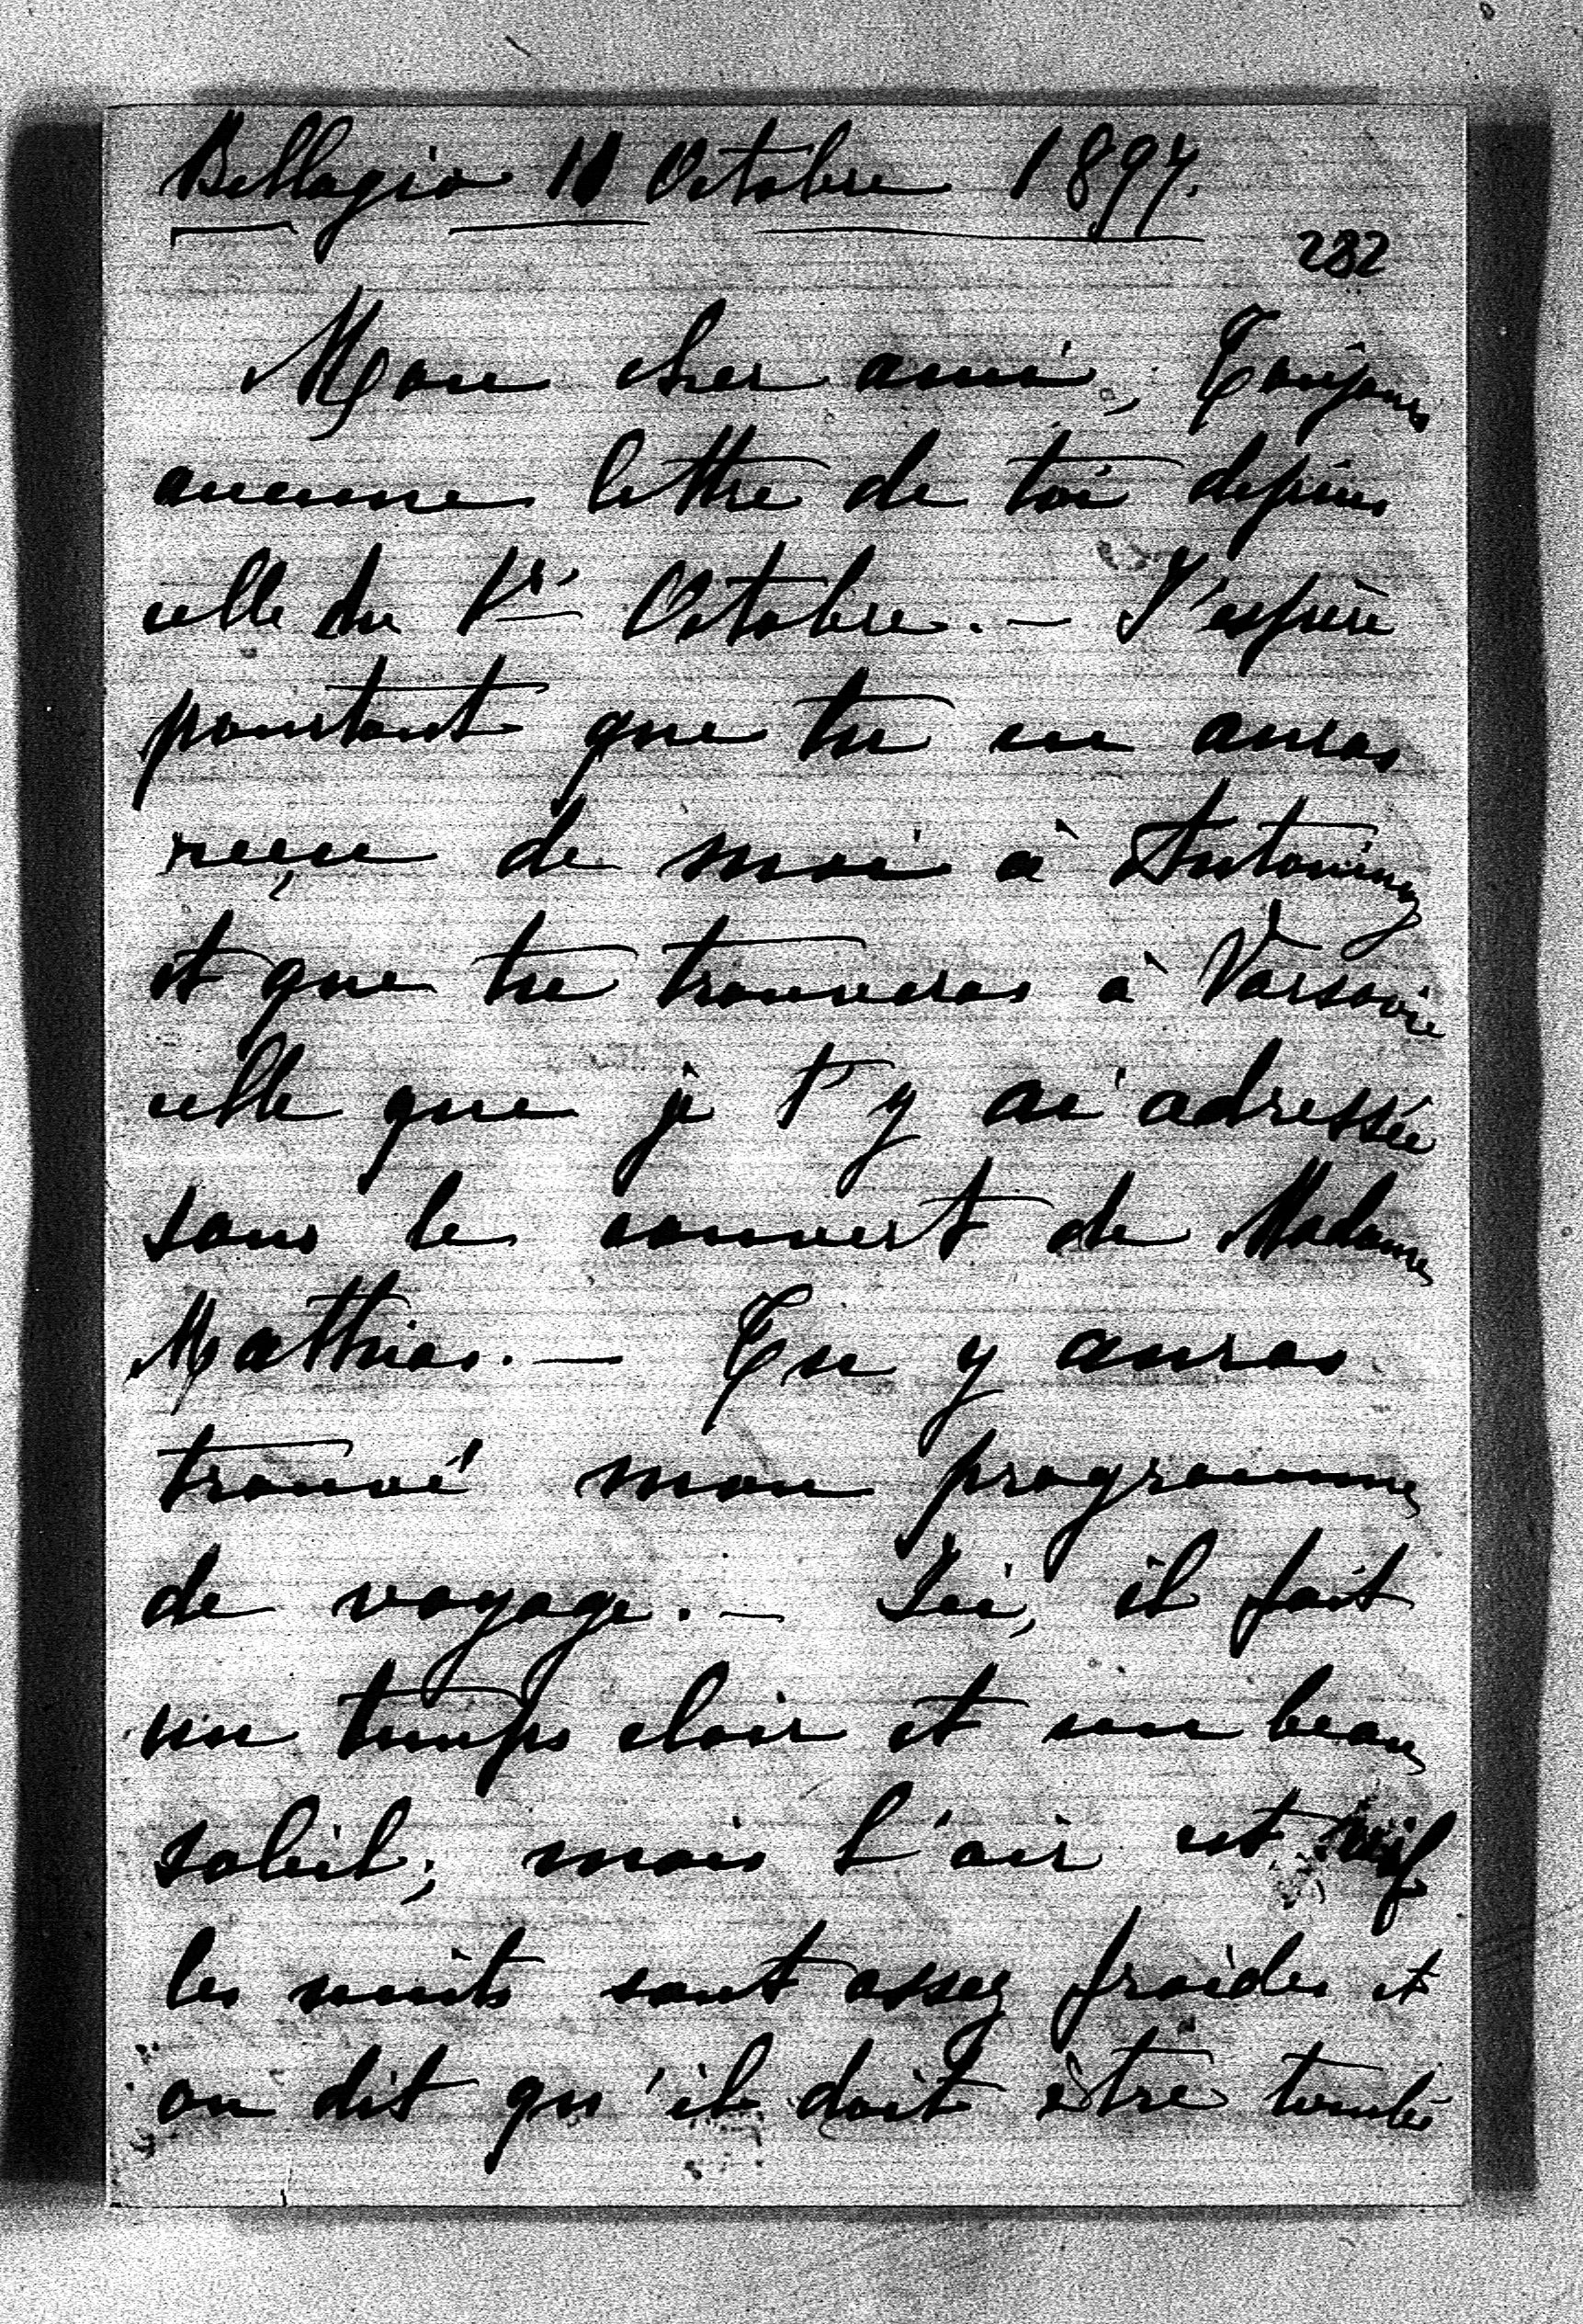 Bellagio 11 Octobre 1897.
282
Mon cher ami, Toujours
aucune lettre de toi depuis
celle du 1er Octobre. — J'espère
pourtant que tu en auras
reçu de moi à Antoniny
et que tu trouveras à Varsovie
celle que je t'y ai adressée
sous le couvert de Madame
Mathias. — Tu y auras
trouvé mon programme
de voyage. — Ici, il fait
un temps clair et un beau
soleil; mais l'air est vif
les nuits sont assez froides et
on dit qu'il doit être tombé